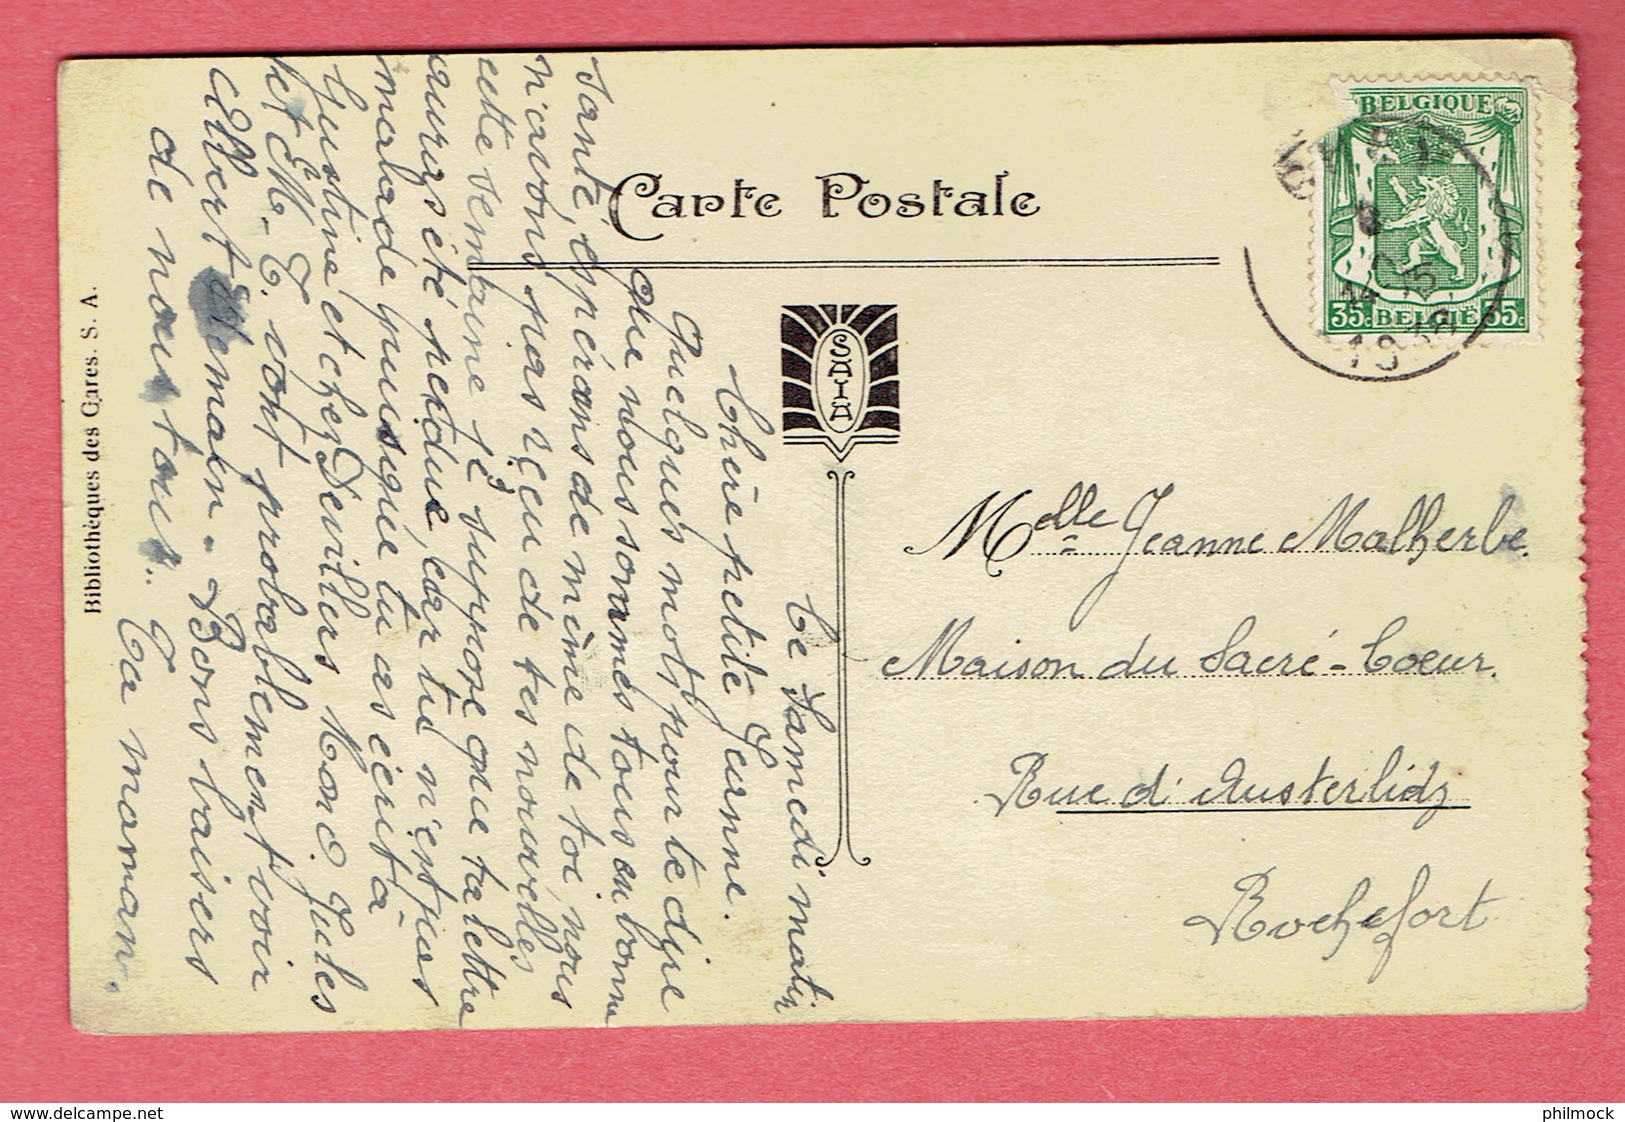 Carte Postale
BELGIQUE
35c BELGIË 35c
14-15
SAID
Bibliothèques des Gares. S. A.
Ce Samedi matin
Chère petite Jeanne.
Quelques mots pour te dire
que nous sommes tous en bonne
santé, espérons de même de toi, nous
n'avons pas reçu de tes nouvelles
cette semaine je suppose que ta lettre
aura été perdue, car tu n'est pas
malade puisque tu as écrit à
Justine et chez Devillers Mond Jules
et M. T. vont probablement voir
Albert demain. Bons baisers
de nous tous.. Ta maman.
Melle Jeanne Malherbe.
Maison du Sacré-Coeur.
Rue d'Austerlidz
Rochefort
philmock